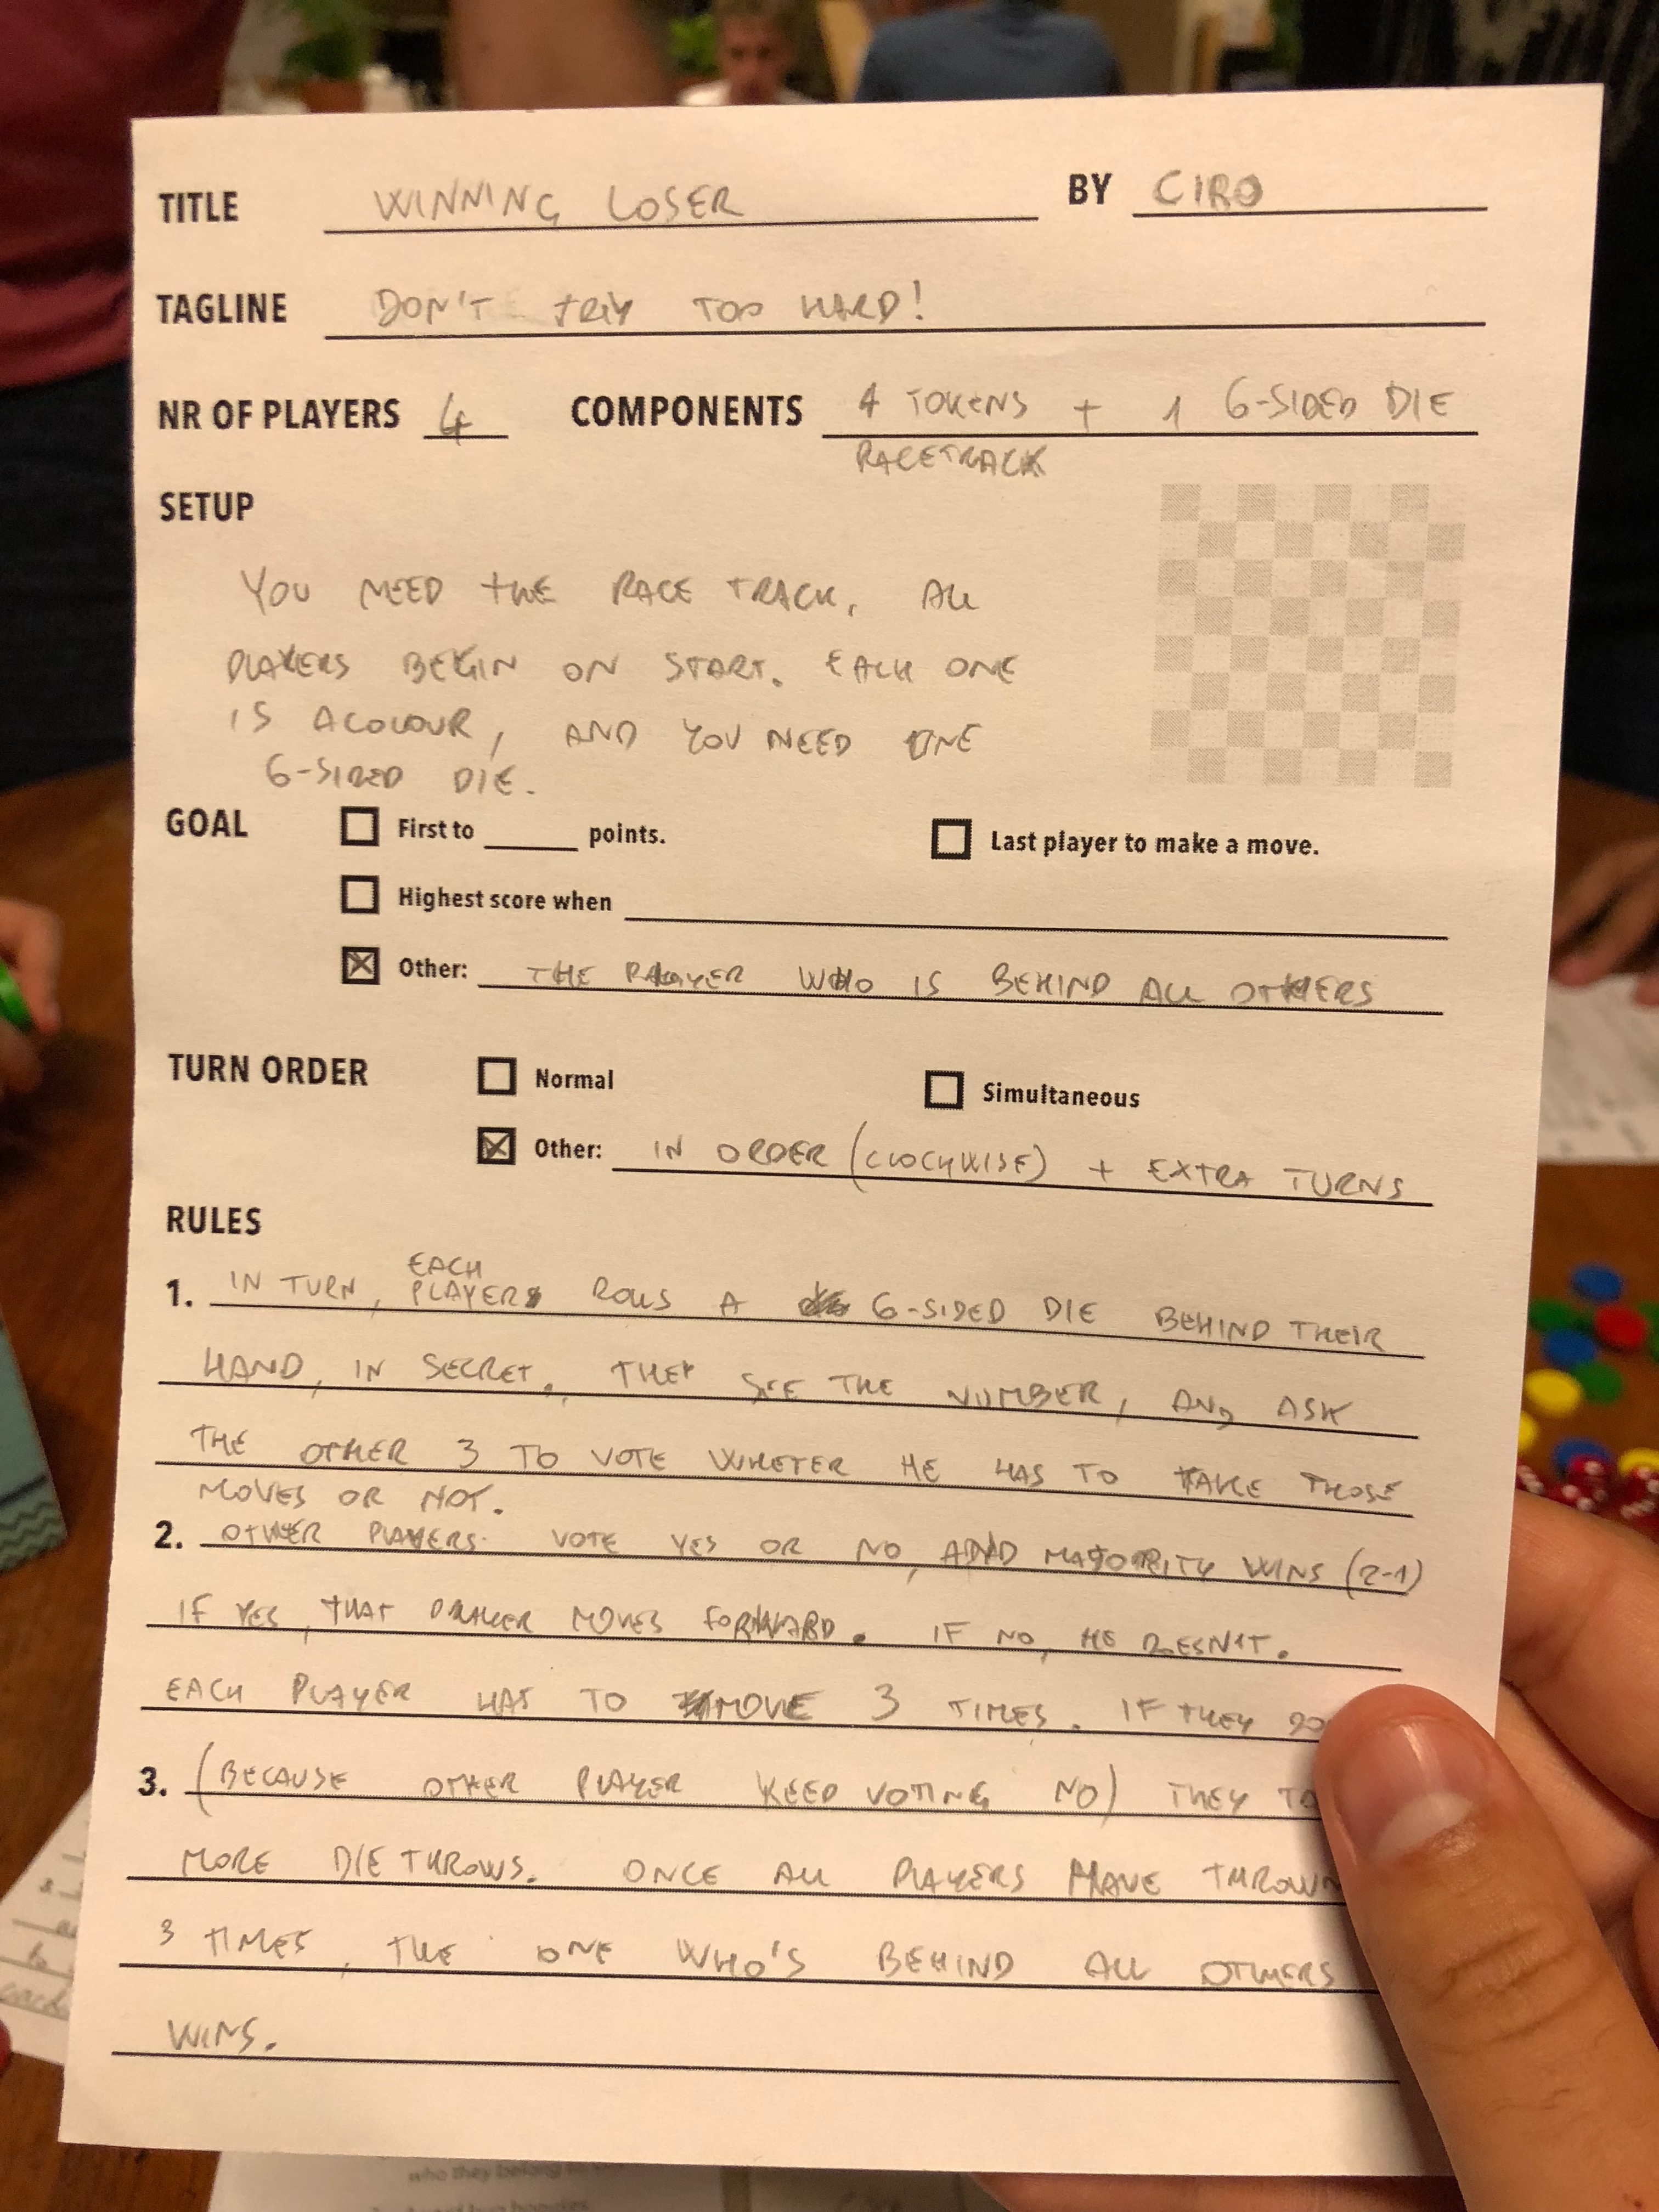 TITLE WINNING LOSER BY CIRO
TAGLINE DON'T TRY TOO HARD!
NR OF PLAYERS 4 COMPONENTS 4 TOKENS + 1 6-SIDED DIE
RACETRACK
SETUP
YOU NEED THE RACE TRACK, ALL
PLAYERS BEGIN ON START. EACH ONE
IS A COLOUR, AND YOU NEED ONE
6-SIDED DIE.
GOAL First to points. Last player to make a move.
Highest score when
Other: THE PLAYER WHO IS BEHIND ALL OTHERS
TURN ORDER Normal Simultaneous
Other: IN ORDER (CLOCKWISE) + EXTRA TURNS
RULES
EACH
1. IN TURN, PLAYER ROLLS A 6-SIDED DIE BEHIND THEIR
HAND, IN SECRET. THEY SEE THE NUMBER, AND ASK
THE OTHER 3 TO VOTE WHETER HE HAS TO TAKE THOSE
MOVES OR NOT.
2. OTHER PLAYERS VOTE YES OR NO, AND MAJORITY WINS (2-1)
IF YES, THAT PLAYER MOVES FORWARD. IF NO, HE DOESN'T.
EACH PLAYER HAS TO MOVE 3 TIMES. IF THEY DO
3. (BECAUSE OTHER PLAYER KEEP VOTING NO) THEY
MORE DIE THROWS. ONCE ALL PLAYERS HAVE THROWN
3 TIMES, THE ONE WHO'S BEHIND ALL OTHERS
WINS.
who they belong